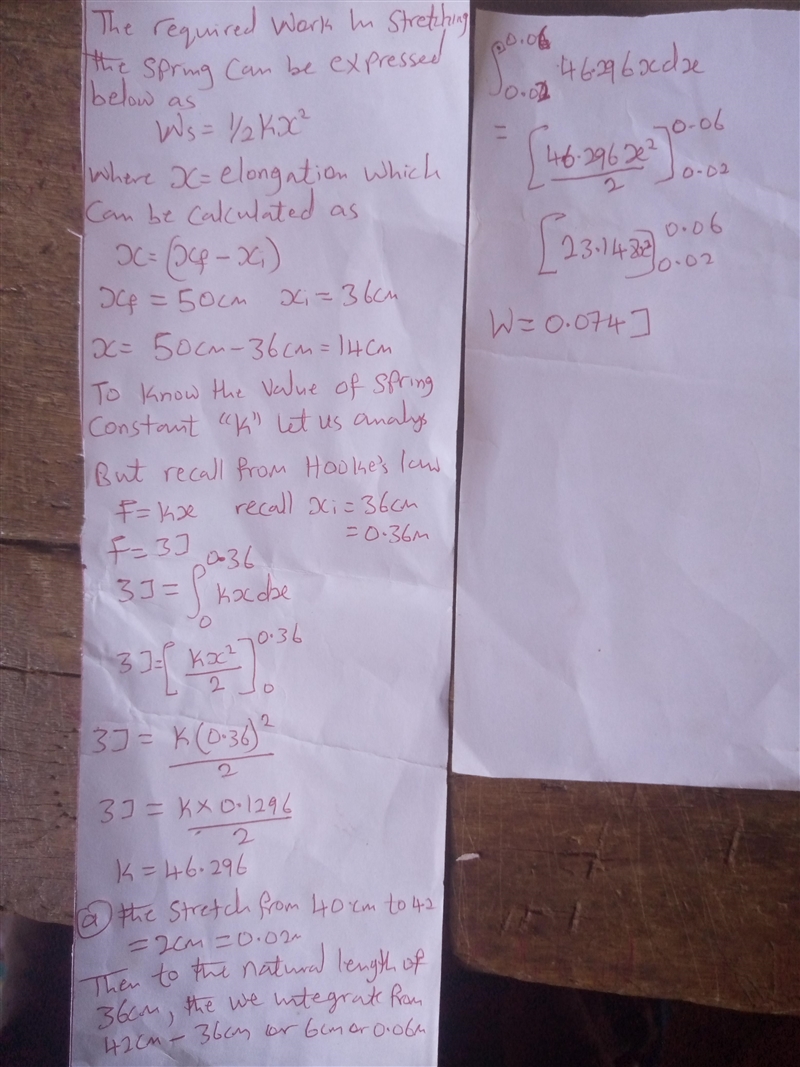 The required work in stretching
the spring can be expressed
below as
Ws = 1/2 Kx²
Where x = elongation which
can be calculated as
x = (xf - xi)
xf = 50cm xi = 36cm
x = 50cm - 36cm = 14cm
To know the value of spring
constant "K" let us analys
But recall from Hooke's law
F = Kx recall xi = 36cm
= 0.36m
F = 3J
3J = ∫₀^0.36 Kx dx
3J = [Kx²/2]₀^0.36
3J = K(0.36)²/2
3J = K × 0.1296/2
K = 46.296
(a) the stretch from 40cm to 42
= 2cm = 0.02m
Then to the natural length of
36cm, the we integrate from
42cm - 36cm or 6cm or 0.06m
∫_0.02^0.06 46.296x dx
= [46.296x²/2]_0.02^0.06
[23.148x²]_0.02^0.06
W = 0.074J